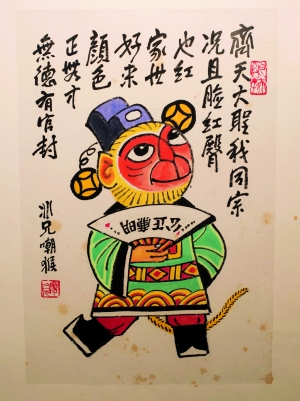 齊天大聖我同宗
況且臉紅臀
也紅
家世
好来
顏色
正無才
無德有官封
冰兄嘲猴
公正廉明